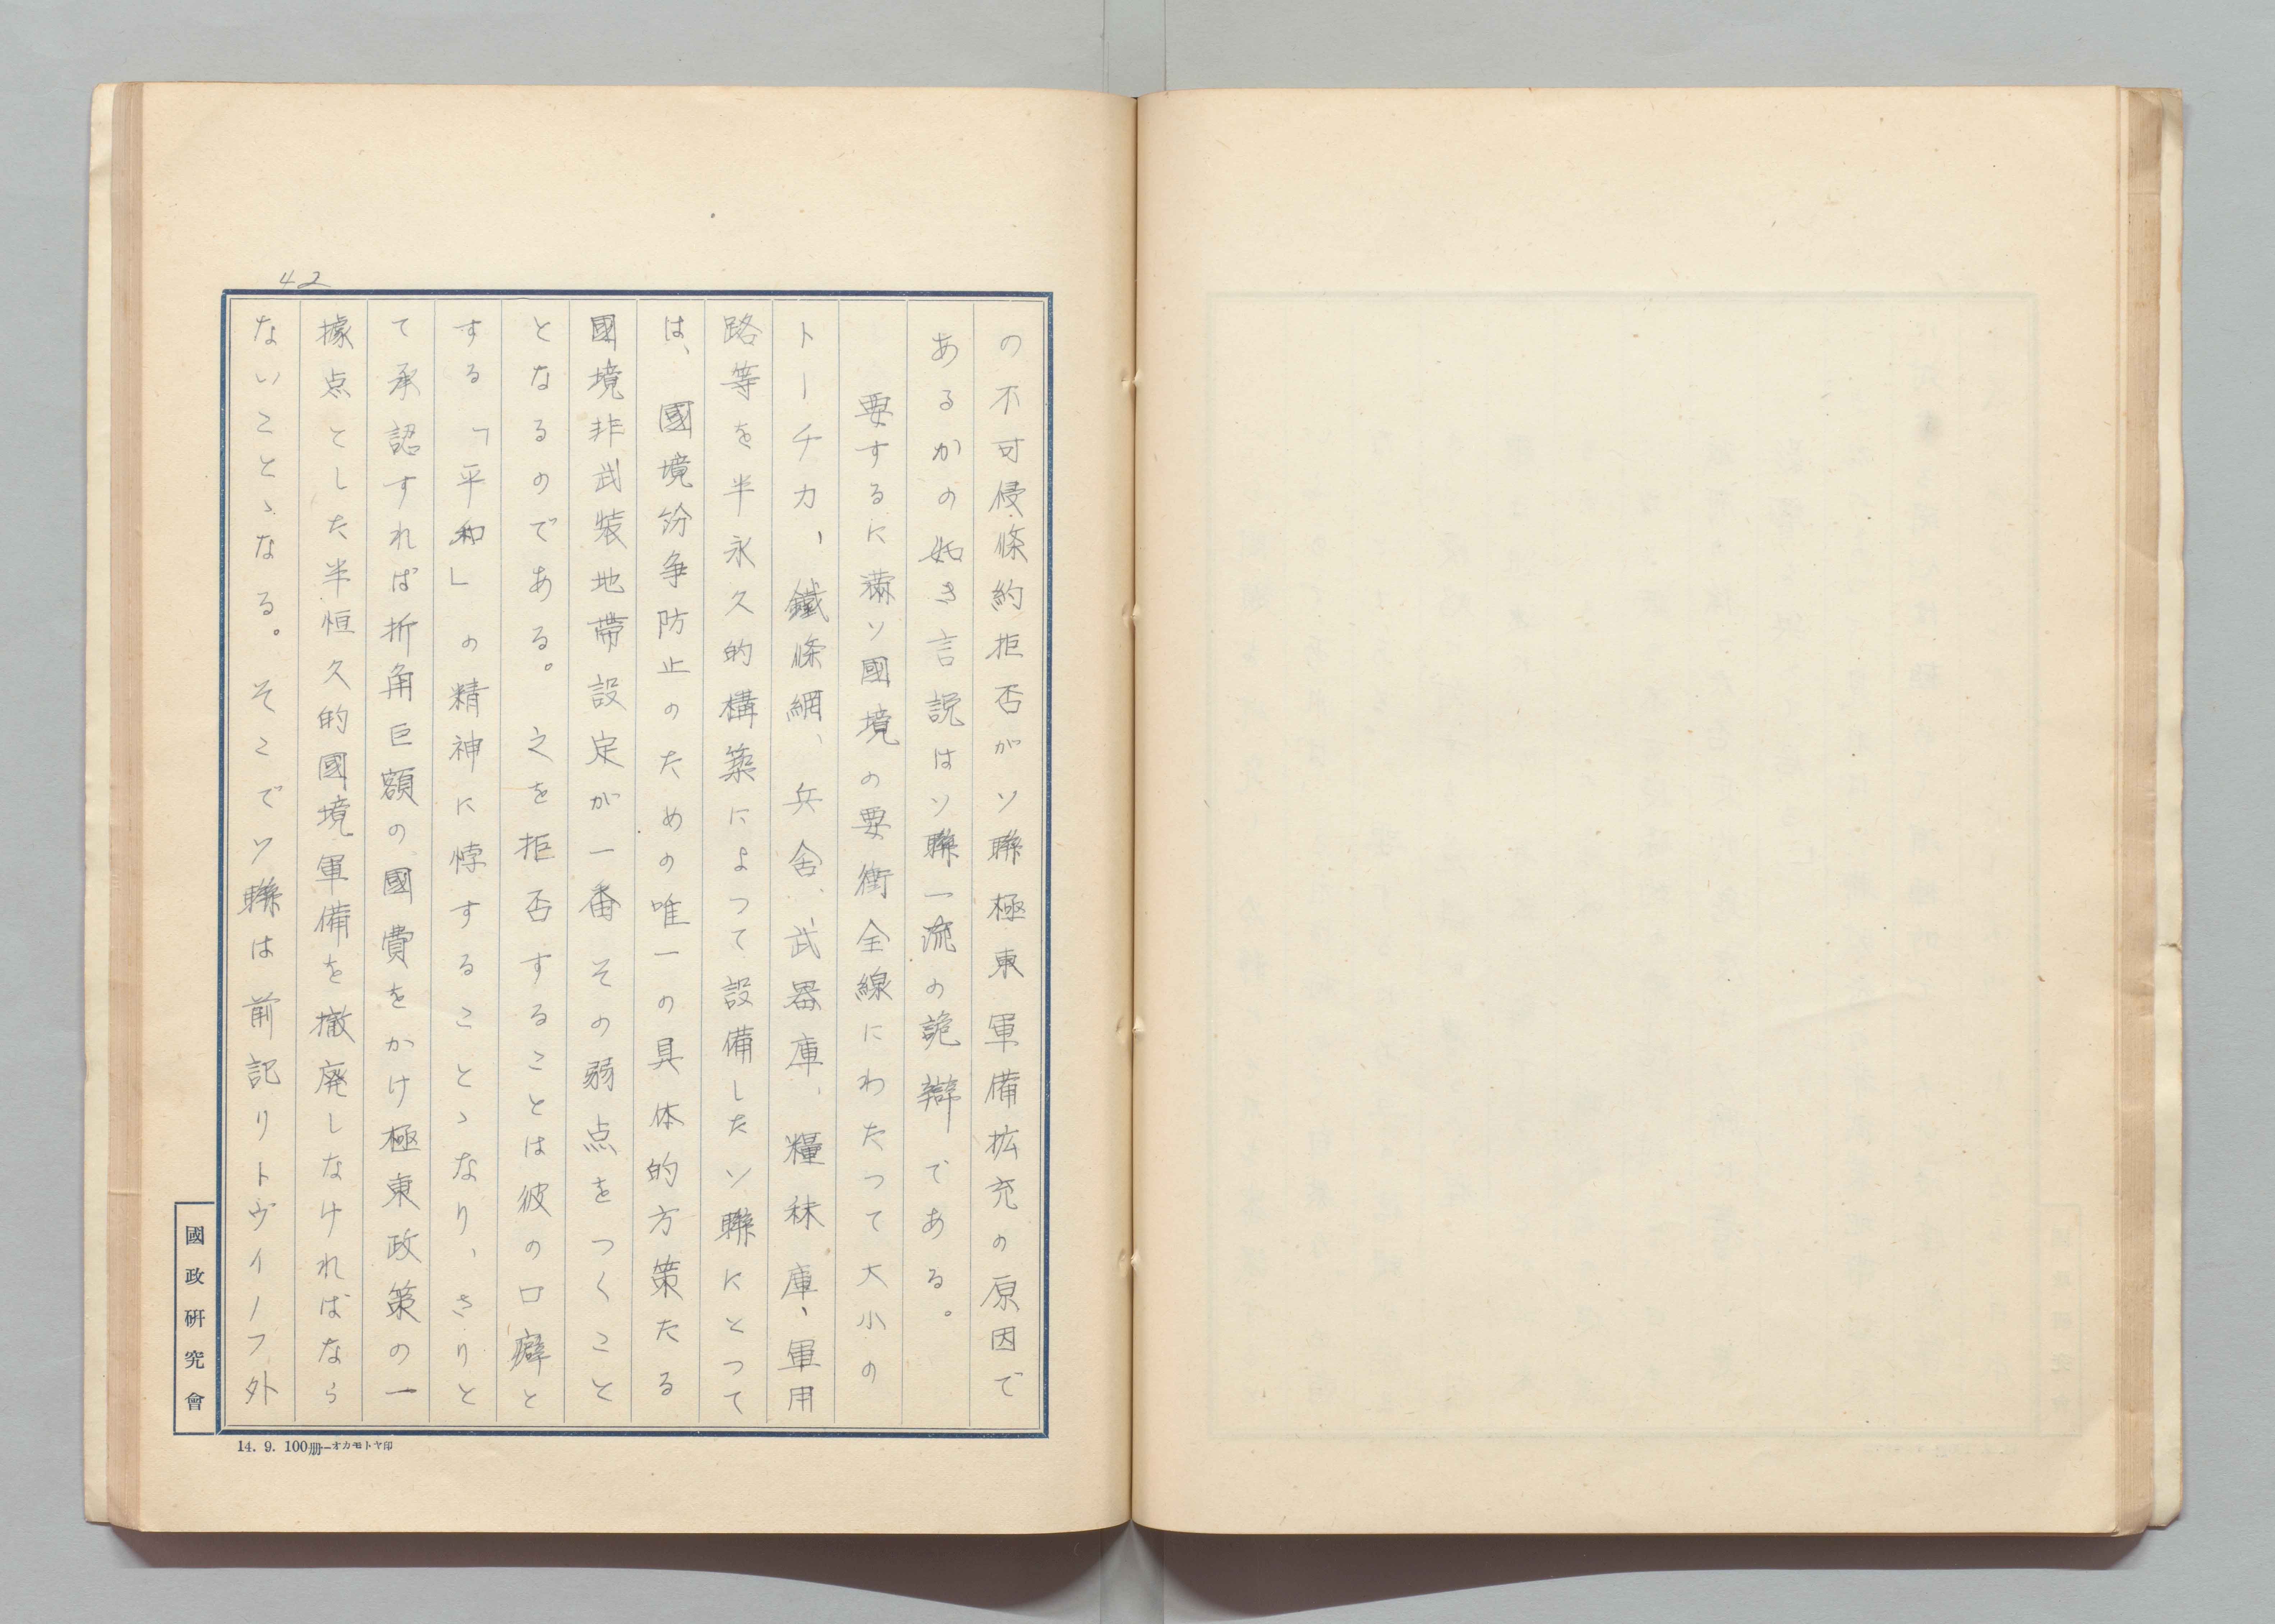 42
の不可侵條約拒否がソ聯極東軍備拡充の原因で
あるかの如き言説はソ聯一流の詭辯である。
要するに満ソ國境の要衝全線にわたつて大小の
トーチカ、鐵條網、兵舎、武器庫、糧秣庫、軍用
路等を半永久的構築によつて設備したソ聯にとつて
は、國境紛争防止のための唯一の具体的方策たる
國境非武装地帶設定が一番その弱点をつくこと
となるのである。之を拒否することは彼の口癖と
する「平和」の精神に悖することゝなり、さりと
て承認すれば折角巨額の國費をかけ極東政策の一
據点とした半恒久的國境軍備を撤廃しなければなら
ないことゝなる。そこでソ聯は前記リトヴイノフ外
國政研究會
14. 9. 100册—オカモトヤ印